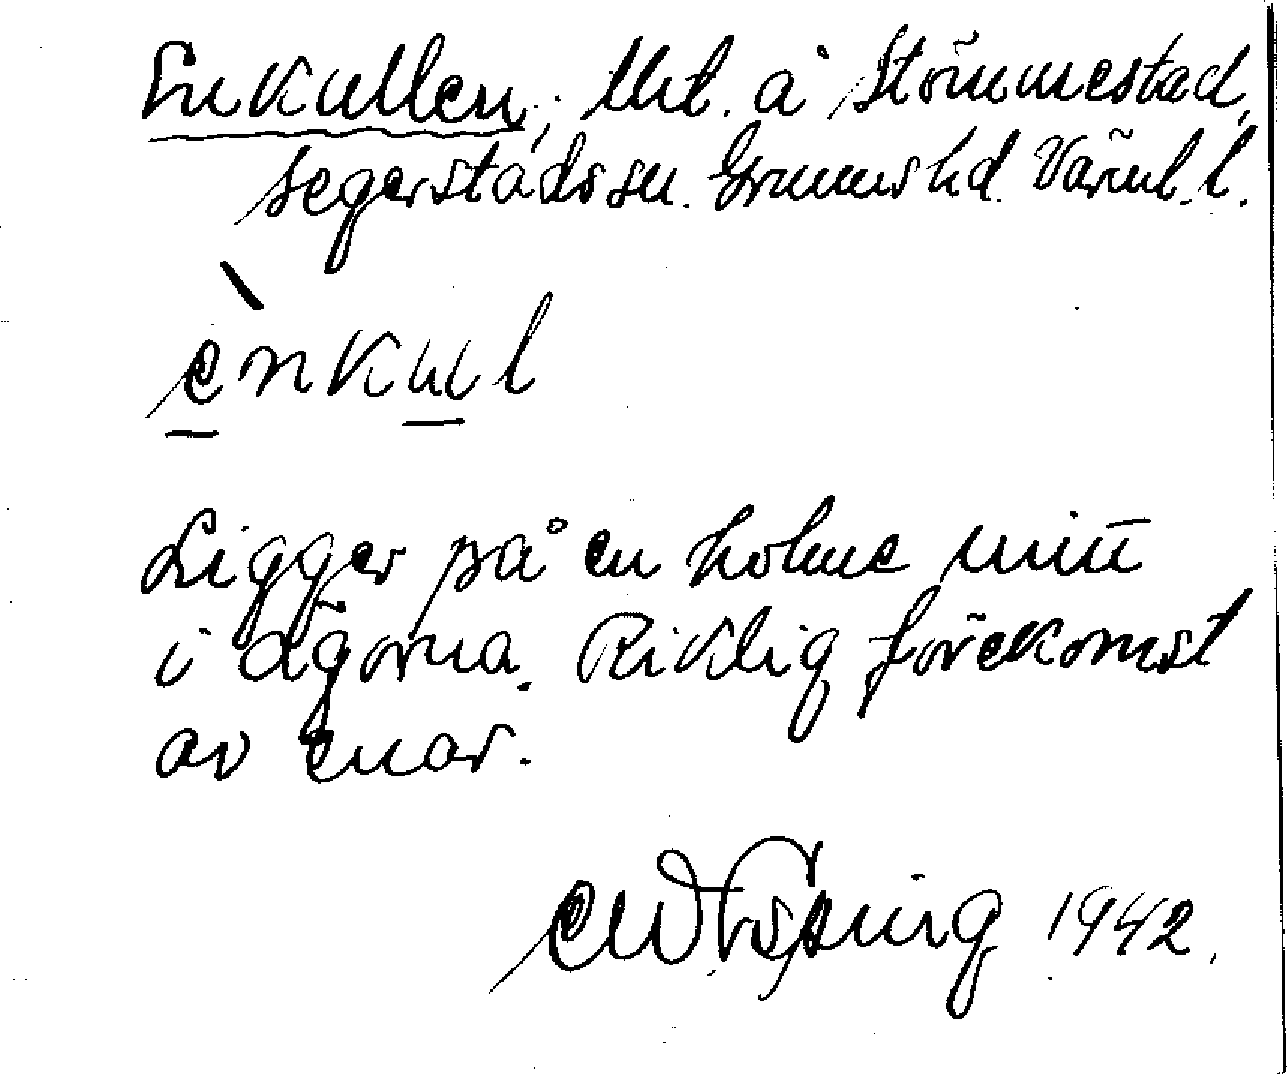 Enkullen; Utl. å Stömmestad,
Segerstads sn. Grums hd. Värml. l.
ènkul
Ligger på en holme mitt
i ägorna. Riklig förekomst
av enar.
1942.